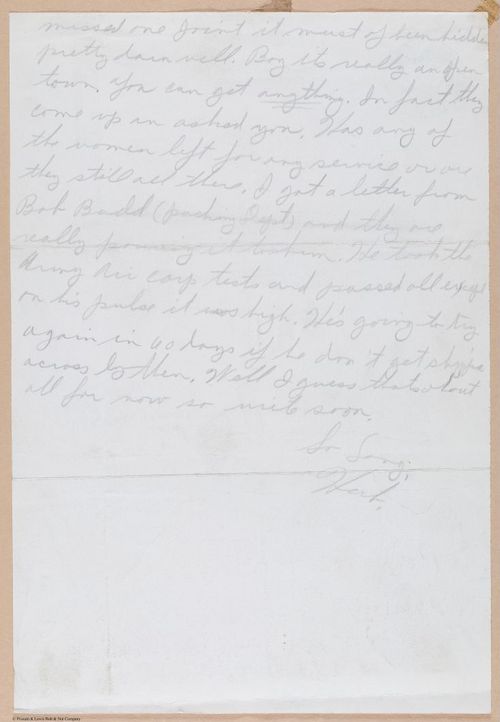 missed one joint it must of been hidden
pretty darn well. Boy its really an open
town. You can get anything. In fact they
come up in asked you. Has any of
the women left for any service or are
they still all there. I got a letter from
Bob Budd (packing Dept) and they are
really pouring it to him. He took the
Army Air corp tests and passed all except
on his pulse it was high. He's going to try
again in 60 days if he don't get shipped
across by then. Well I guess thats about
all for now so write soon.
So Long,
Herb.
© Prassett & Lewis Bolt & Nut Company